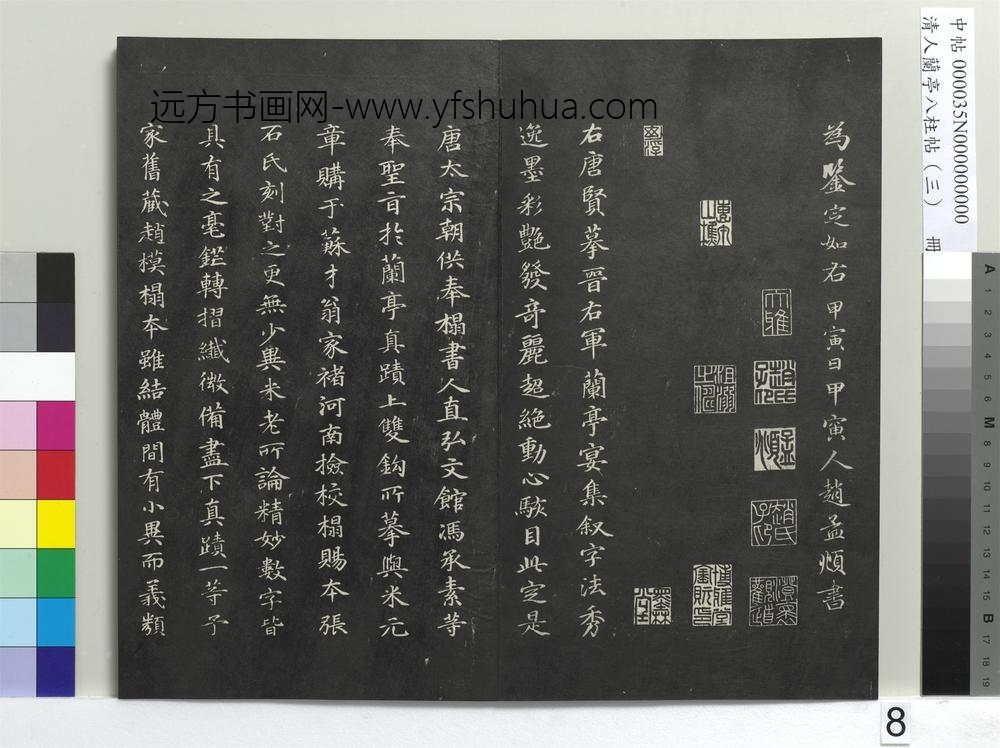 中帖 000035N000000000
清人蘭亭八柱帖（三） 冊
远方书画网-www.yfshuhua.com
為鑒定如右甲寅日甲寅人趙孟頫書
大雅
趙氏子昂
孟頫
趙氏子印
澄懷觀道
右唐賢摹晉右軍蘭亭宴集叙字法秀
逸墨彩艷發奇麗超絶動心駭目此定是
唐太宗朝供奉榻書人直弘文館馮承素等
奉聖旨於蘭亭真蹟上雙鈎所摹與米元
章購于蘇才翁家褚河南撿校榻賜本張
石氏刻對之更無少異米老所論精妙數字皆
具有之毫鋩轉摺纖微備盡下真蹟一等予
家舊藏趙模榻本雖結體間有小異而義類
A 1 2 3 4 5 6 M 8 9 10 11 12 13 14 15 B 17 18 19
8